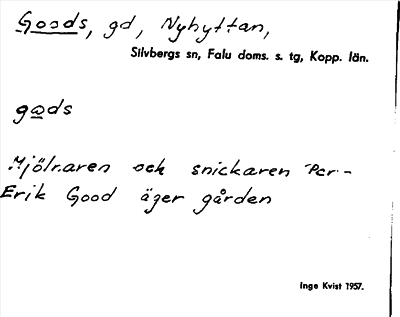 Goods, gd, Nyhyttan,
Silvbergs sn, Falu doms. s. tg, Kopp. län.
gods
Mjölnaren och snickaren Per-
Erik Good äger gården
Inge Kvist 1957.